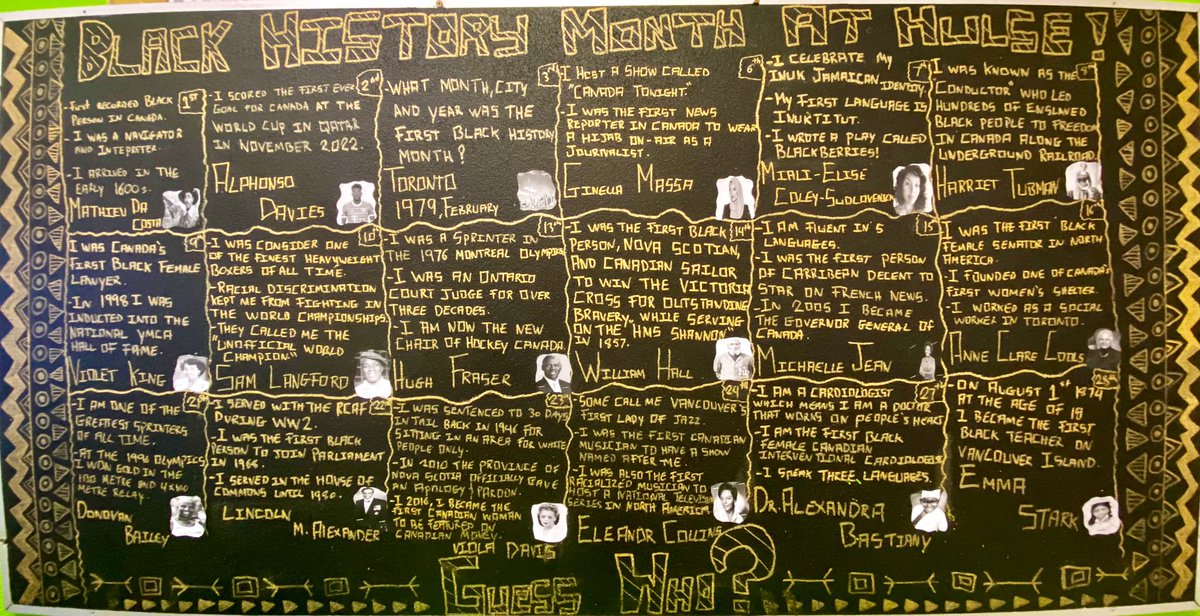 BLACK HISTORY MONTH AT HULSE!
1ST
-FIRST RECORDED BLACK
PERSON IN CANADA.
-I WAS A NAVIGATOR
AND INTEPRETER.
-I ARRIVED IN THE
EARLY 1600s.
MATHIEU DA
COSTA
2ND
-I SCORED THE FIRST EVER
GOAL FOR CANADA AT THE
WORLD CUP IN QATAR
IN NOVEMBER 2022.
ALPHONSO
DAVIES
3RD
-WHAT MONTH, CITY
AND YEAR WAS THE
FIRST BLACK HISTORY
MONTH?
TORONTO
1979, FEBRUARY
6TH
I HOST A SHOW CALLED
"CANADA TONIGHT."
-I WAS THE FIRST NEWS
REPORTER IN CANADA TO WEAR
A HIJAB ON-AIR AS A
JOURNALIST.
GINELLA MASSA
7TH
-I CELEBRATE MY
INUK JAMAICAN
IDENTITY.
-MY FIRST LANGUAGE IS
INUKTITUT.
-I WROTE A PLAY CALLED
BLACKBERRIES!
MIALI-ELISE
COLEY-SUDLOVENICK
8TH
I WAS KNOWN AS THE
CONDUCTOR" WHO LED
HUNDREDS OF ENSLAVED
BLACK PEOPLE TO FREEDOM
IN CANADA ALONG THE
UNDERGROUND RAILROAD
HARRIET TUBMAN
9TH
I WAS CANADA'S
FIRST BLACK FEMALE
LAWYER.
-IN 1998 I WAS
INDUCTED INTO THE
NATIONAL YMCA
HALL OF FAME.
VIOLET KING
10TH
-I WAS CONSIDER ONE
OF THE FINEST HEAVYWEIGHT
BOXERS OF ALL TIME.
-RACIAL DISCRIMINATION
KEPT ME FROM FIGHTING IN
THE WORLD CHAMPIONSHIPS.
-THEY CALLED ME THE
"UNOFFICIAL WORLD
CHAMPION"
SAM LANGFORD
13TH
-I WAS A SPRINTER IN
THE 1976 MONTREAL OLYMPICS
-I WAS AN ONTARIO
COURT JUDGE FOR OVER
THREE DECADES.
-I AM NOW THE NEW
CHAIR OF HOCKEY CANADA.
HUGH FRASER
14TH
-I WAS THE FIRST BLACK
PERSON, NOVA SCOTIAN,
AND CANADIAN SAILOR
TO WIN THE VICTORIA
CROSS FOR OUTSTANDING
BRAVERY" WHILE SERVING
ON THE "HMS SHANNON"
IN 1857.
WILLIAM HALL
15
-I AM FLUENT IN 5
LANGUAGES.
-I WAS THE FIRST PERSON
OF CARRIBEAN DECENT TO
STAR ON FRENCH NEWS.
-IN 2005 I BECAME
THE GOVERNOR GENERAL OF
CANADA.
MICHAELLE JEAN
16
-I WAS THE FIRST BLACK
FEMALE SENATOR IN NORTH
AMERICA.
-I FOUNDED ONE OF CANADA'S
FIRST WOMEN'S SHELTER
-I WORKED AS A SOCIAL
WORKER IN TORONTO.
ANNE CLARE COOLS
21ST
-I AM ONE OF THE
GREATEST SPRINTERS
OF ALL TIME.
-AT THE 1996 OLYMPICS
I WON GOLD IN THE
100 METRE AND 4x100
METRE RELAY.
DONOVAN
BAILEY
22ND
-I SERVED WITH THE RCAF
DURVING WW2.
-I WAS THE FIRST BLACK
PERSON TO JOIN PARLIAMENT
IN 1968.
-I SERVED IN THE HOUSE OF
COMMONS UNTIL 1980.
LINCOLN
M. ALEXANDER
23RD
-I WAS SENTENCED TO 30 DAYS
IN JAIL BACK IN 1946 FOR
SITTING IN AN AREA FOR WHITE
PEOPLE ONLY.
-IN 2010 THE PROVINCE OF
NOVA SCOTIA OFFICIALLY GAVE
AN APOLOGY & PARDON.
-I 2016, I BECAME THE
FIRST CANADIAN WOMAN
TO BE FEATURED ON
CANADIAN MONEY.
VIOLA DAVIS
24TH
-SOME CALL ME VANCOUVER'S
FIRST LADY OF JAZZ.
-I WAS THE FIRST CANADIAN
MUSICIAN TO HAVE A SHOW
NAMED AFTER ME.
-I WAS ALSO THE FIRST
RACIALIZED MUSICIAN TO
HOST A NATIONAL TELEVISION
SERIES IN NORTH AMERICA
ELEANOR COLLINS
27TH
-I AM A CARDIOLOGIST
WHICH MEANS I AM A DOCTOR
THAT WORKS ON PEOPLE'S HEART
-I AM THE FIRST BLACK
FEMALE CANADIAN
INTERVENTIONAL CARDIOLOGIST
-I SPEAK THREE LANGUAGES.
DR. ALEXANDRA
BASTIANY
28TH
-ON AUGUST 1ST 1874
AT THE AGE OF 18
I BECAME THE FIRST
BLACK TEACHER ON
VANCOUVER ISLAND.
EMMA
STARK
GUESS WHO?